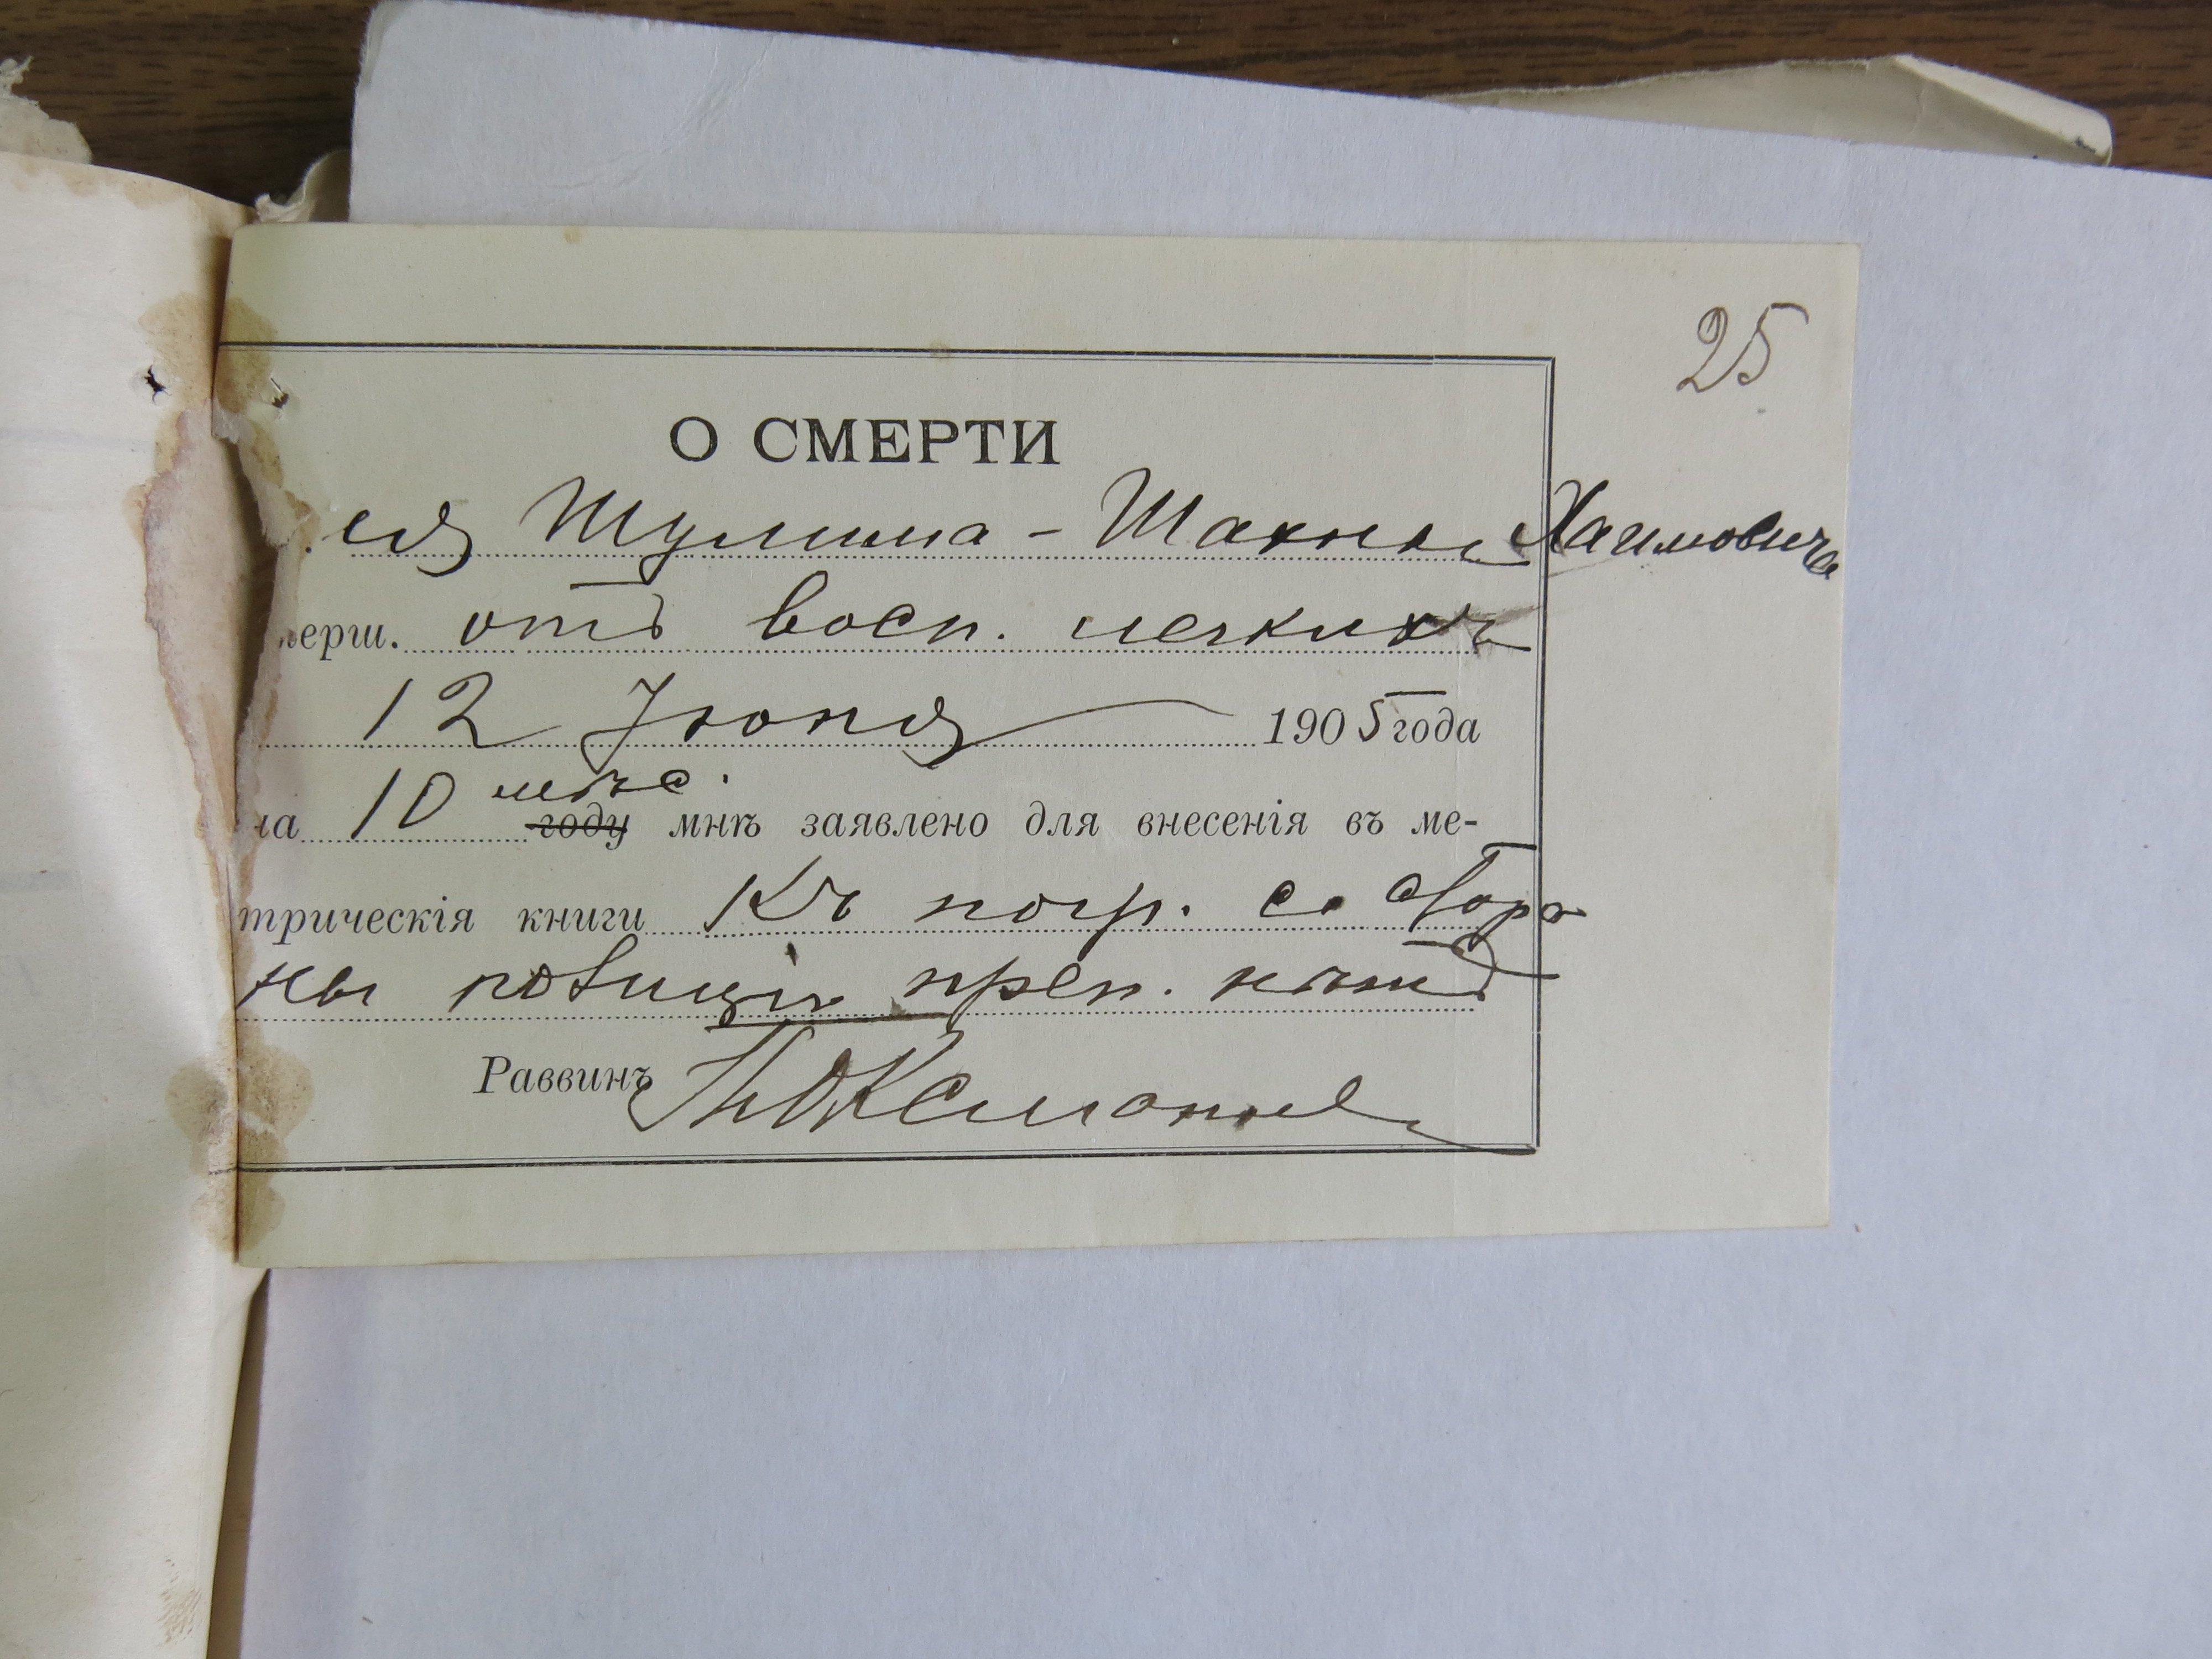 25
О СМЕРТИ
еля Шулима-Шахны Хаимовича
мерш. отъ восп. легкихъ
12 Іюня 1905 года
на 10 мѣс. году мнѣ заявлено для внесенія въ ме-
трическія книги Къ погр. со сторо
ны полиціи преп. нѣтъ
Раввинъ